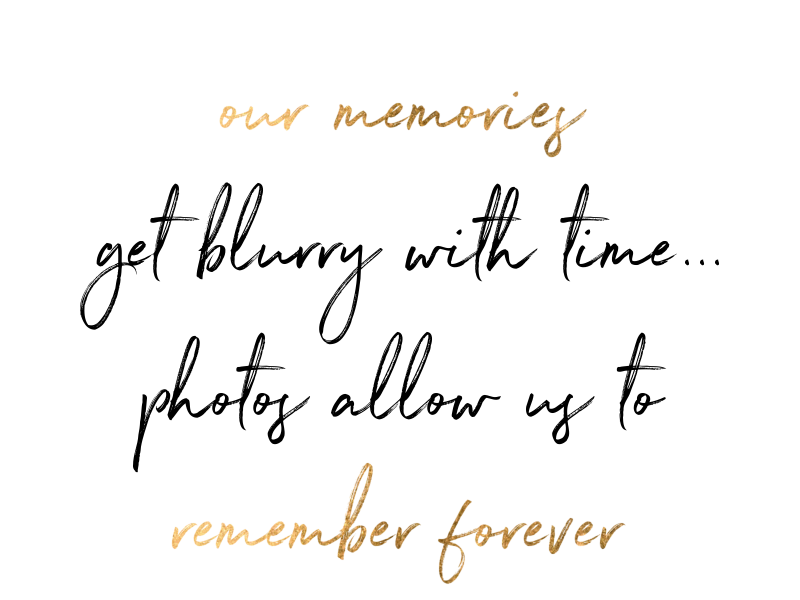 our memories
get blurry with time...
photos allow us to
remember forever